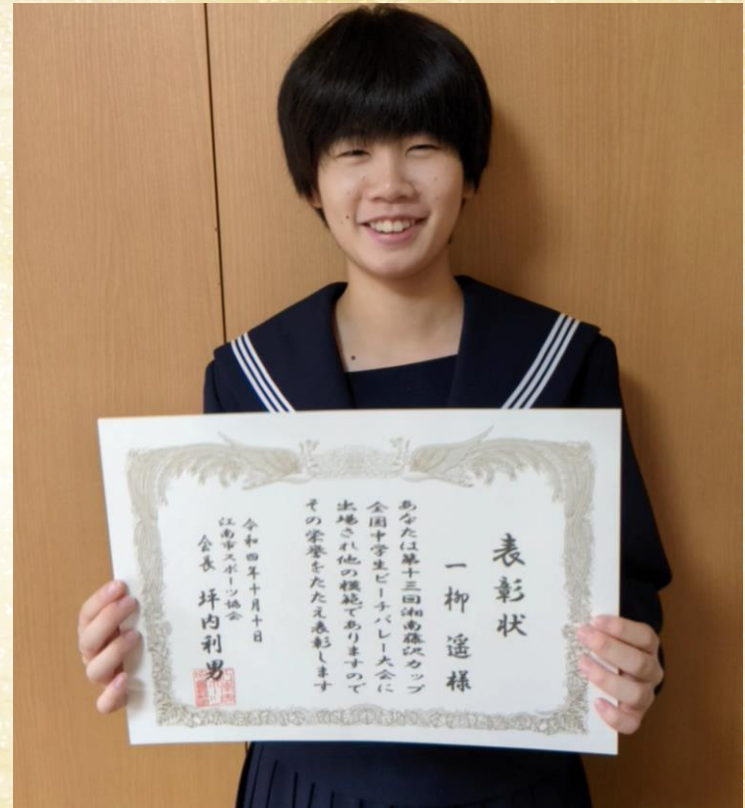 表彰状
一柳 遥 様
あなたは第十三回湘南藤沢カップ
全国中学生ビーチバレー大会に
出場され他の模範でありますので
その栄誉をたたえ表彰します
令和四年十月十日
江南市スポーツ協会
会長 坪内利男